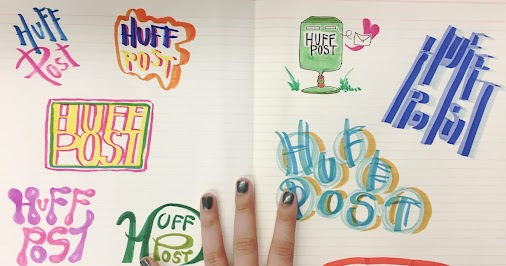 HUFF
Post
HUFF
POST
HUFF
POST
HUFF
POST
HUFF
Post
HUFF
POST
HUFF
POST
HUFF
POST